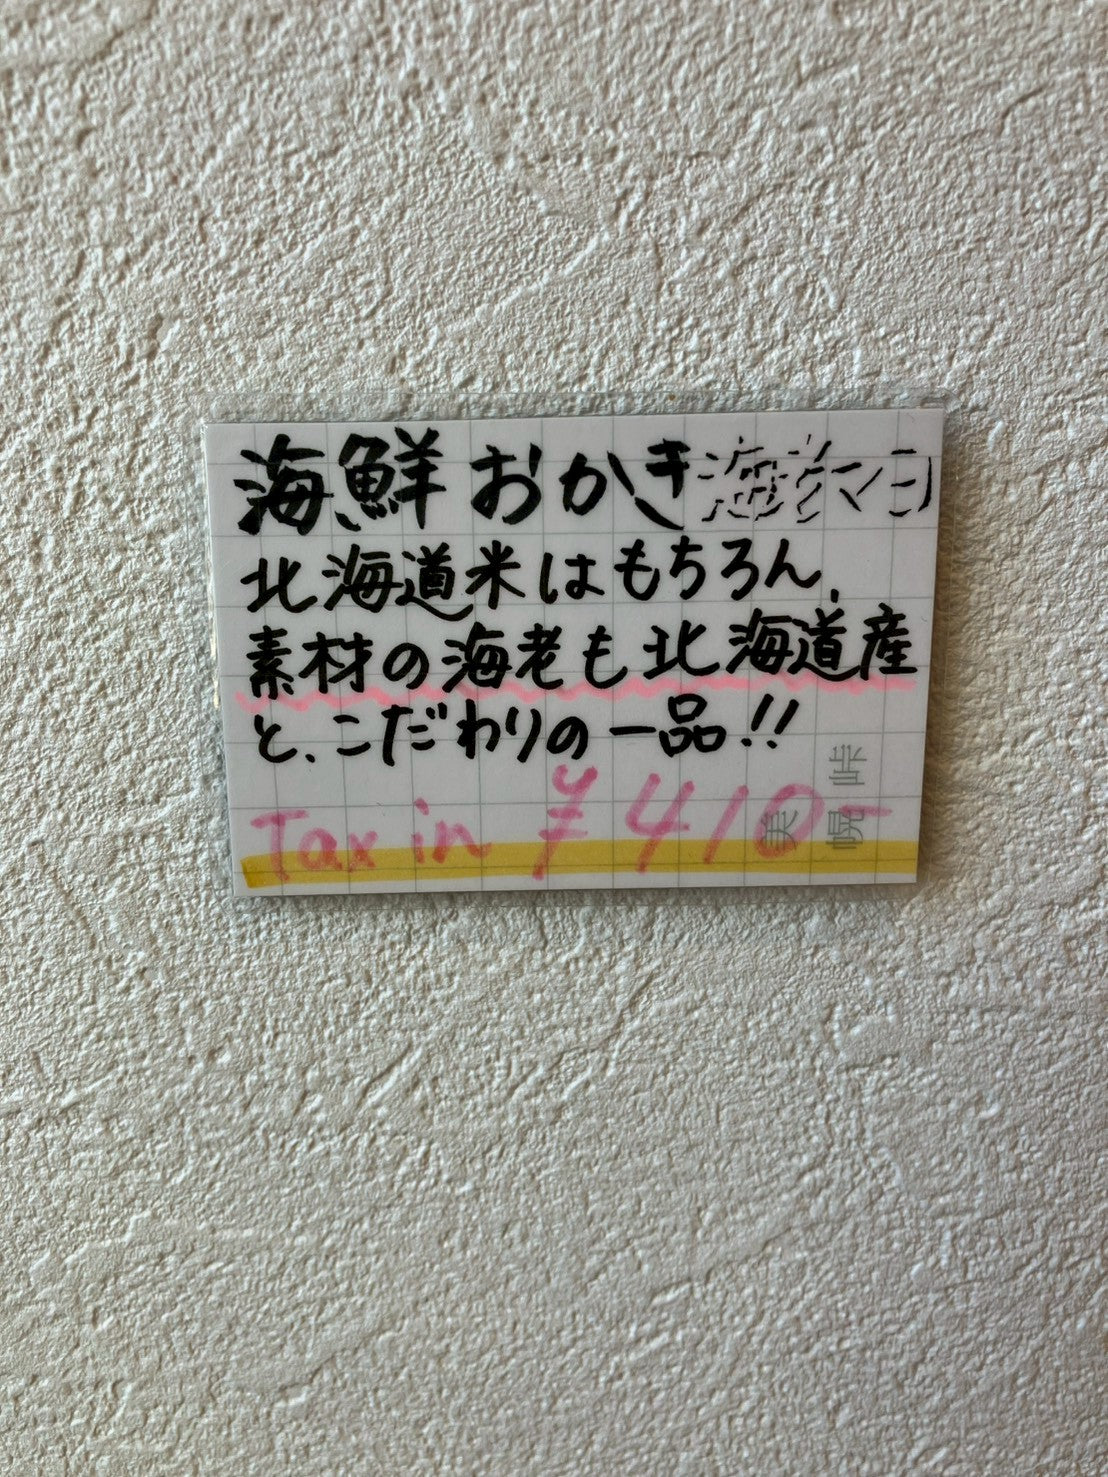 海鮮おかき海老マヨ
北海道米はもちろん、
素材の海老も北海道産
と、こだわりの一品!!
Tax in ¥410-